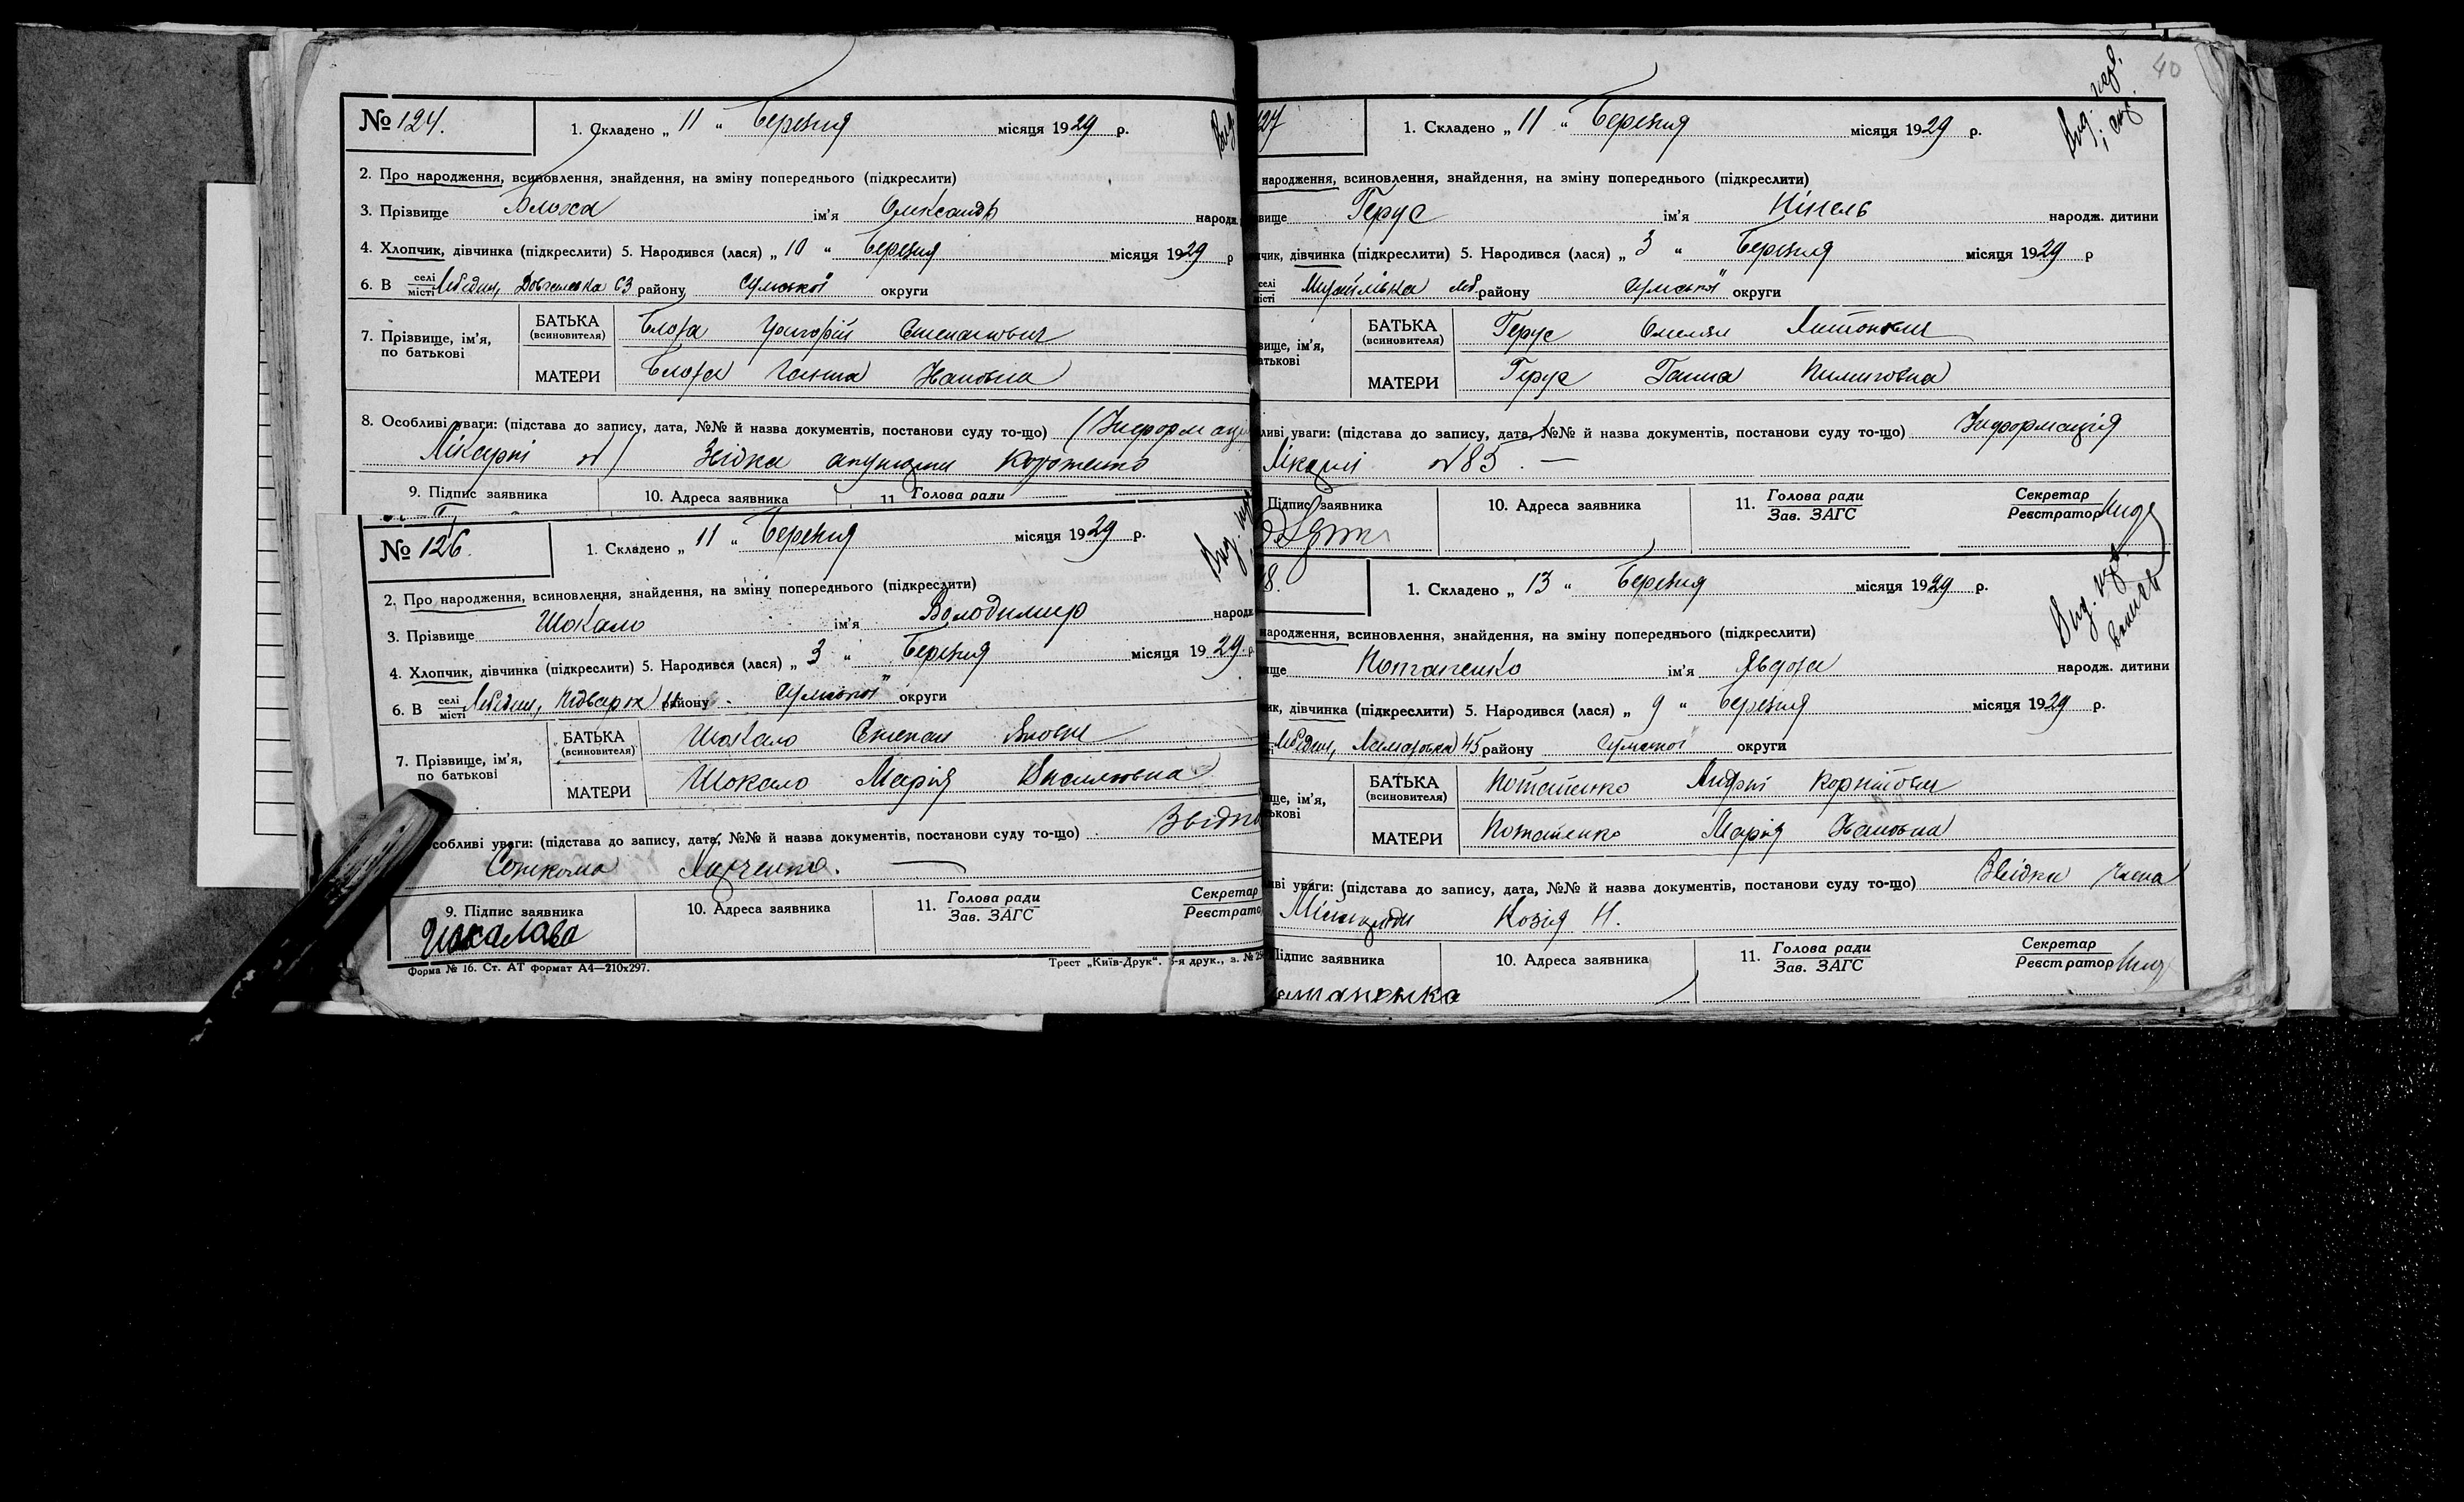 № 124.
1. Складено „ 11 “ Березня місяця 1929 р.
2. Про народження, всиновлення, знайдення, на зміну попереднього (підкреслити)
3. Прізвище Блоха ім'я Олександр народж.
4. Хлопчик, дівчинка (підкреслити) 5. Народився (лася) „ 10 “ Березня місяця 1929 р
6. В селі місті Лебедин, 63 району Сумської округи
7. Прізвище, ім'я, по батькові
БАТЬКА (всиновителя) Блоха Григорій Степанович
МАТЕРИ Блоха Ганна Івановна
8. Особливі уваги: (підстава до запису, дата, №№ й назва документів, постанови суду то-що) (Інформація
Лікарні Звідка акушерки
9. Підпис заявника 10. Адреса заявника 11 Голова ради
№ 126.
1. Складено „ 11 “ Березня місяця 1929 р.
2. Про народження, всиновлення, знайдення, на зміну попереднього (підкреслити)
3. Прізвище Шокало ім'я Володимир народж
4. Хлопчик, дівчинка (підкреслити) 5. Народився (лася) „ 3 “ Березня місяця 1929 р
6. В селі місті Лебедин, Підварок району Сумської округи
7. Прізвище, ім'я, по батькові
БАТЬКА (всиновителя) Шокало Степан
МАТЕРИ Шокало Марія Василовна
собливі уваги: (підстава до запису, дата, №№ й назва документів, постанови суду то-що) Звідка
Харченко.
9. Підпис заявника 10. Адреса заявника 11. Голова ради Зав. ЗАГС Секретар Реєстратор
Шокалова
Форма № 16. Ст. АТ формат А4—210x297. Трест „Київ-Друк“. 3-я друк., з. № 25
40
Вид. перв.
27
1. Складено „ 11 “ Березня місяця 1929 р.
народження, всиновлення, знайдення, на зміну попереднього (підкреслити)
вище Герус ім'я Нінель народж. дитини
чик, дівчинка (підкреслити) 5. Народився (лася) „ 3 “ Березня місяця 1929 р
селі місті Михайлівка Леб. району Сумської округи
вище, ім'я, атькові
БАТЬКА (всиновителя) Герус Омелян Антонович
МАТЕРИ Герус Ганна Пилиповна
ливі уваги: (підстава до запису, дата, №№ й назва документів, постанови суду то-що) Інформація
Лікарні № 85. —
Підпис заявника 10. Адреса заявника 11. Голова ради Зав. ЗАГС Секретар Реєстратор
8.
1. Складено „ 13 “ Березня місяця 1929 р.
народження, всиновлення, знайдення, на зміну попереднього (підкреслити)
ище Потапенко ім'я Явдоха народж. дитини
ик, дівчинка (підкреслити) 5. Народився (лася) „ 9 “ Березня місяця 1929 р.
Лебедин, 45 району Сумської округи
ще, ім'я, ькові
БАТЬКА (всиновителя) Потапенко Андрій Корнійович
МАТЕРИ Потапенко Марія Івановна
иві уваги: (підстава до запису, дата, №№ й назва документів, постанови суду то-що) Звідка члена
Міськради Козія Н.
Підпис заявника 10. Адреса заявника 11. Голова ради Зав. ЗАГС Секретар Реєстратор